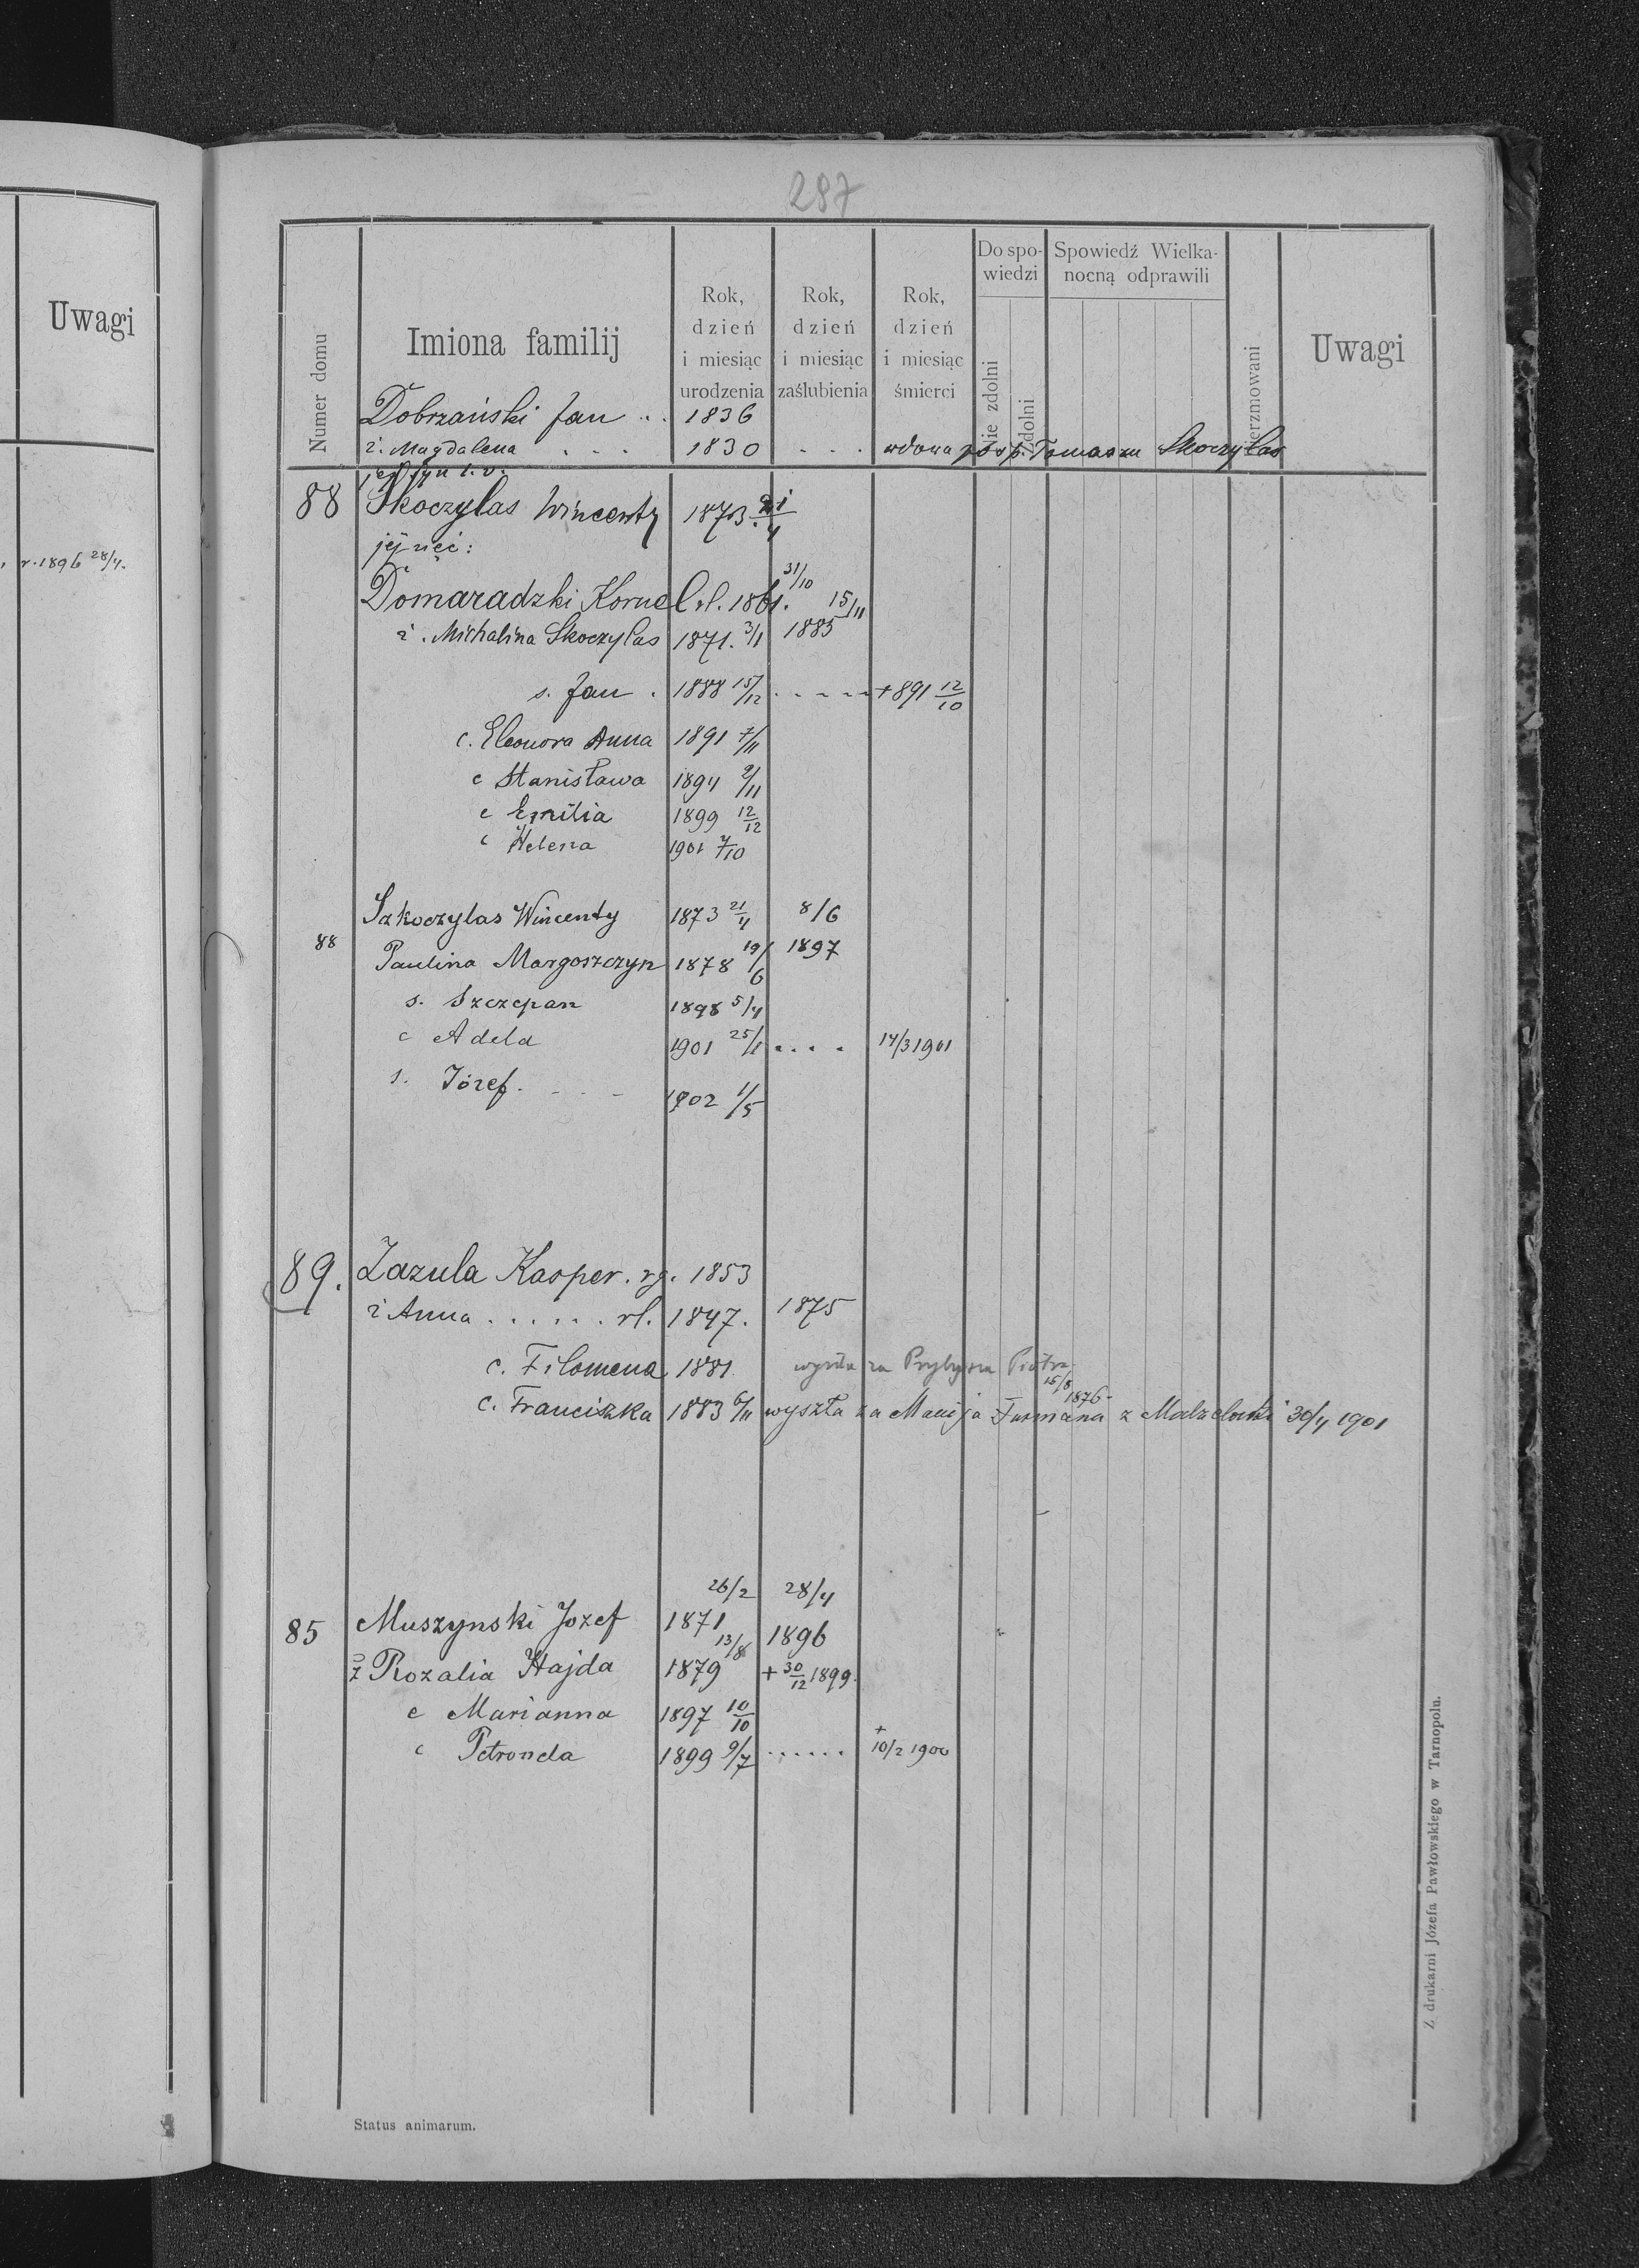 287
Uwagi
r. 1896 28/4.
Numer domu
Imiona familij
Rok, dzień i miesiąc urodzenia
Rok, dzień i miesiąc zaślubienia
Rok, dzień i miesiąc śmierci
Do spowiedzi
Nie zdolni
zdolni
Spowiedź Wielkanocną odprawili
Bierzmowani
Uwagi
Dobrzański Jan .. 1836
ż. Magdalena . . . 1830 . . . wdowa po ś.p. Tomaszu Skoczylas
jej syn 1. v.
88 Skoczylas Wincenty 1873. 21/4
jej zięć:
Domaradzki Kornel rl. 1861. 31/10 15/11
ż. Michalina Skoczylas 1871. 3/1 1885
s. Jan . 1888 15/12 . . . . . +891 12/10
c. Eleonora Anna 1891 7/11
c Stanisława 1894 9/11
c Emilia 1899 12/12
c Helena 1901 4/10
Szkoczylas Wincenty 1873 21/4 8/6
88 Paulina Margoszczyn 1878 19/6 1897
s. Szczepan 1898 5/4
c Adela 1901 25/1 . . . . 14/3 1901
s. Józef. . . . 1902 1/5
89. Zazula Kasper. rg. 1853
ż Anna . . . . . . rl. 1847. 1875
c. Filomena 1881 wyszła za Piotra
c. Franciszka 1883 6/11 wyszła za Macija Furmana 15/8 1876 z 30/4 1901
85 Muszynski Jozef 26/2 1871 28/4 1896
ż Rozalia Hajda 13/8 1879 + 30/12 1899.
c Marianna 1897 10/10
c Petronela 1899 9/7 . . . . . . + 10/2 1900
Status animarum.
Z drukarni Józefa Pawłowskiego w Tarnopolu.